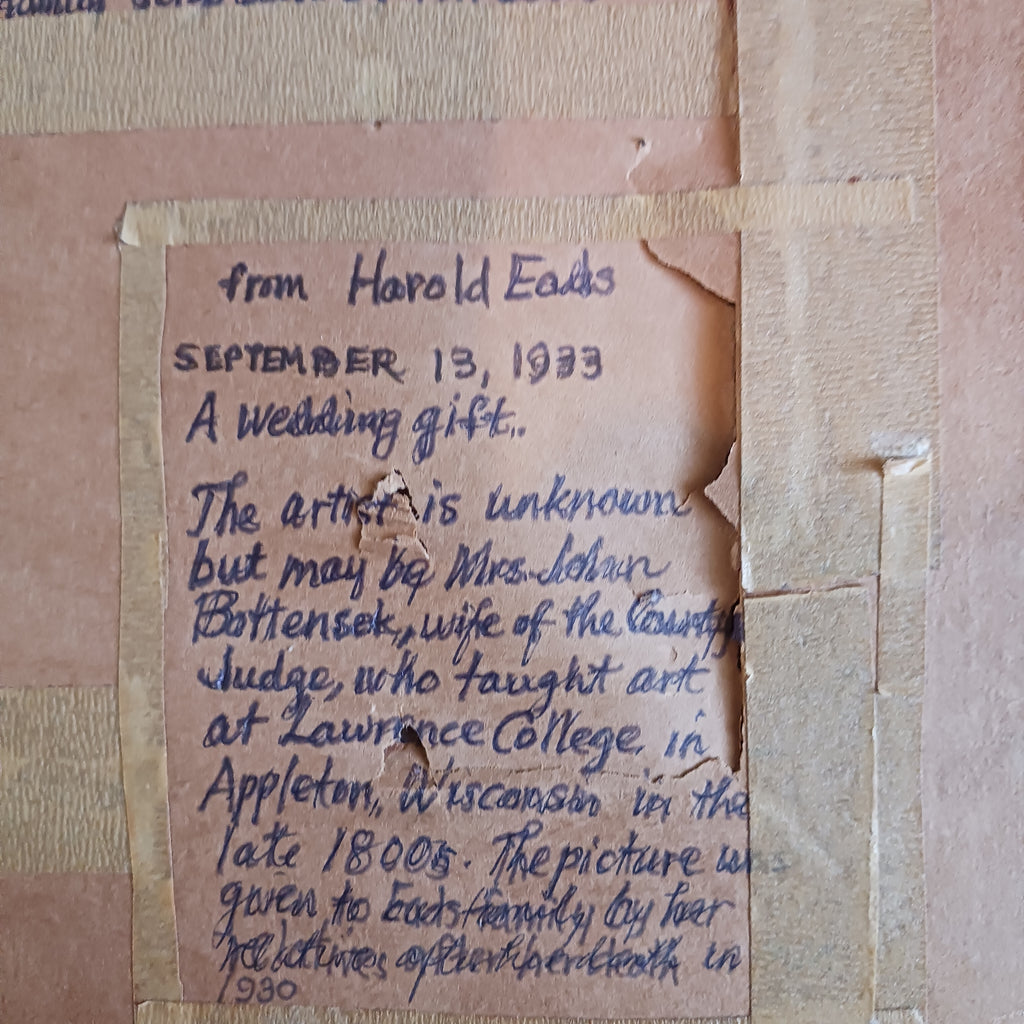 from Harold Eads
SEPTEMBER 13, 1933
A wedding gift.
The artist is unknown
but may be Mrs. John
Bottensek, wife of the County
Judge, who taught art
at Lawrence College in
Appleton, Wisconsin in the
late 1800s. The picture was
given to Eads family by her
relatives after her death in
1930